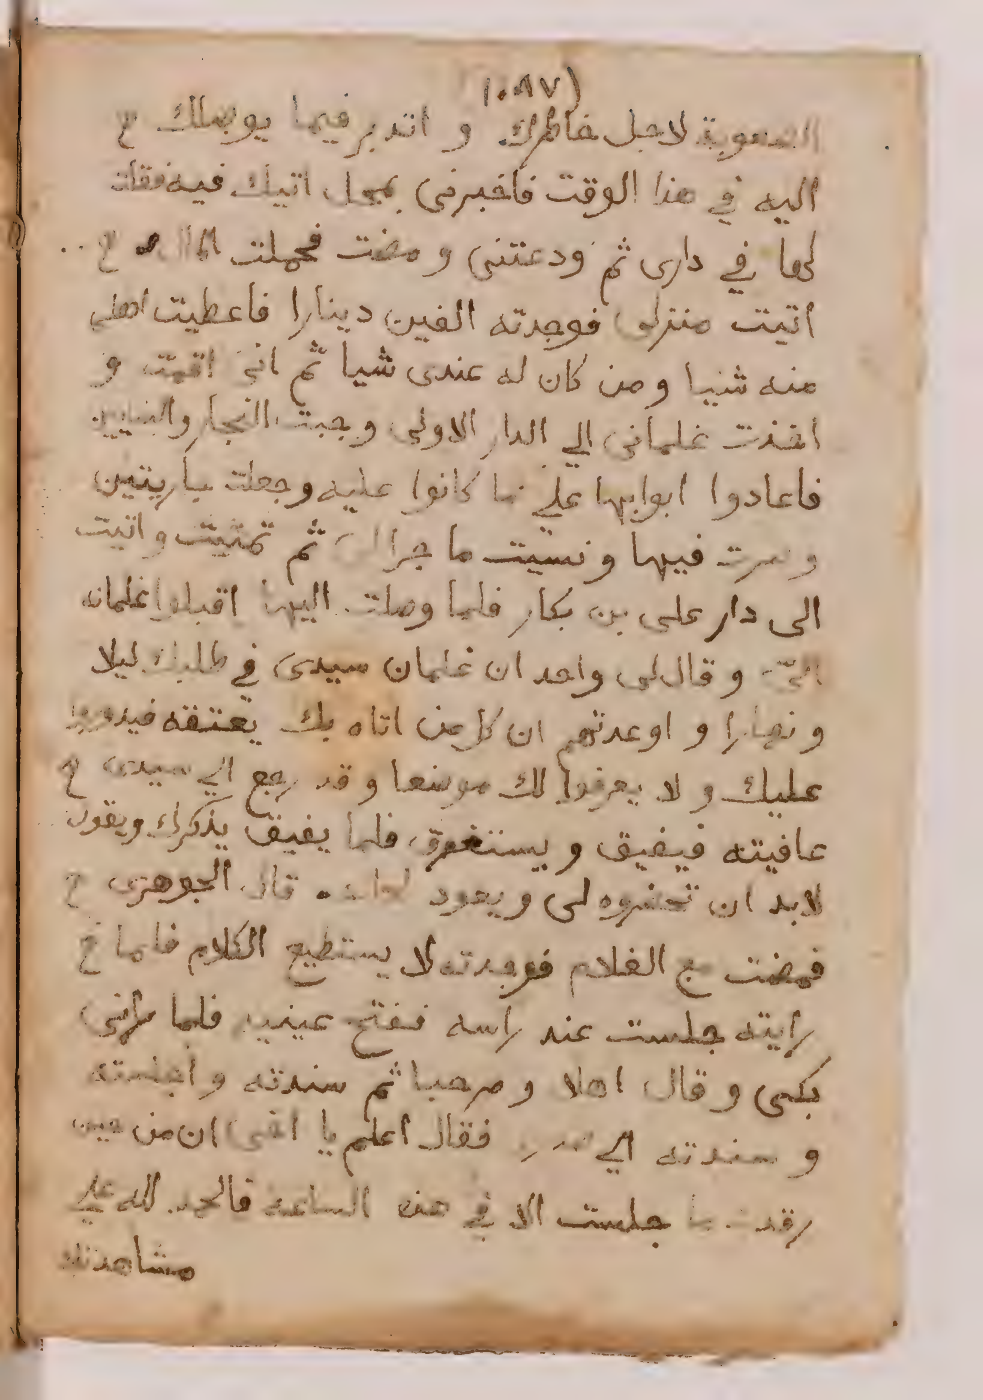 (١٠٨٧
الصعوبة لاجل خاطرك و اتدبر فيما يوصلك ح
اليه في هذا الوقت فاخبرني بمحل اتيك فيه فقلت
لها في داري ثم ودعتني و مضت فحملت المال ح
اتيت منزلي فوجدته الفين دينارا فاعطيت اهلي
منه شيا و من كان له عندي شيا ثم اني اقمت و
اخذت غلماني الي الدار الاولى و جبت النجار والبنايين
فاعادوا ابوابها علي ما كانوا عليه وجعلت جاريتين
و صرت فيها و نسيت ما جرا لي ثم تمشيت واتيت
الى دار على بن بكار فلما وصلت اليها اقبلوا غلمانه
الي و قال لي واحد ان غلمان سيدى في طلبك ليلا
و نهارا و اوعدتهم ان كل من اتاه بك يعتقه فيدوروا
عليك و لا يعرفوا لك موضعا و قد رجع الي سيدى ح
عافيته فيفيق و يستغرق فلما يفيق يذكرك ويقول
لابد ان تحضروه لى و يعود لحاله قال الجوهرى ح
فمضت مع الغلام فوجدته لا يستطيع الكلام فلما ح
رايته جلست عند راسه ففتح عينيه فلما رانى
بكى و قال اهلا و مرحبا ثم سندته و اجلسته
و سندته الي صدرى فقال اعلم يا اخى ان من حين
رقدت ما جلست الا في هذه الساعه فالحمد لله علي
مشاهدتك